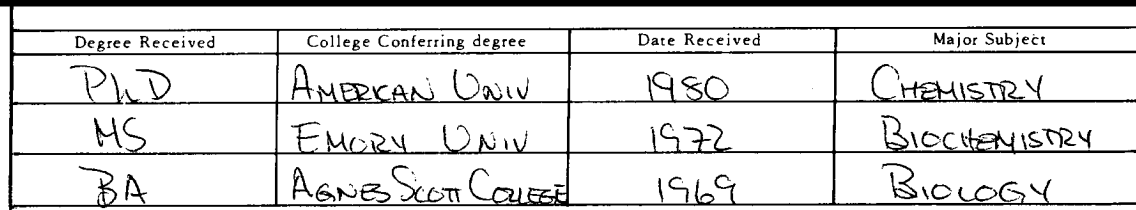 Degree Received College Conferring degree Date Received Major Subject
PhD AMERICAN UNIV 1980 CHEMISTRY
MS EMORY UNIV 1972 BIOCHEMISTRY
BA AGNES SCOTT COLLEGE 1969 BIOLOGY